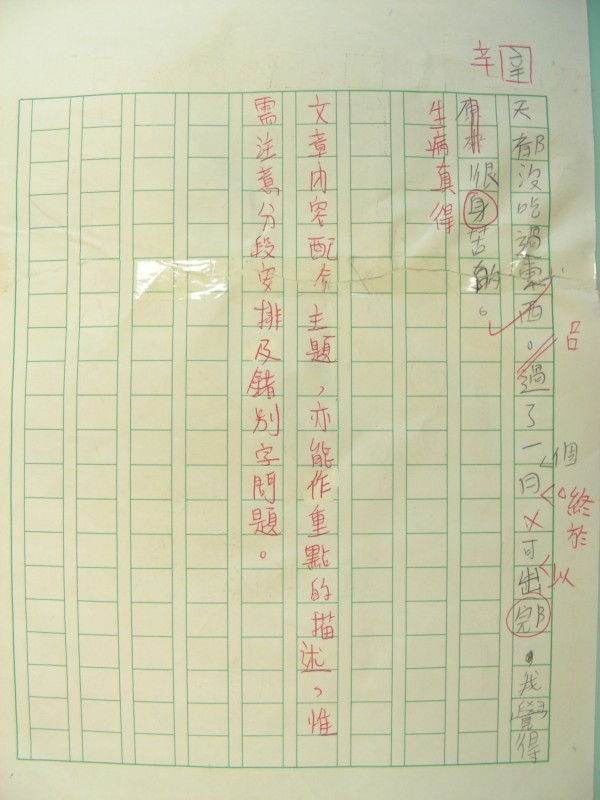 天都沒吃過東西。過了一月可出院,我覺得
個
。終於
以
呂
辛
辛
很身苦的。
生病真得
文章內容配合主題,亦能作重點的描述,惟
需注意分段安排及錯別字問題。